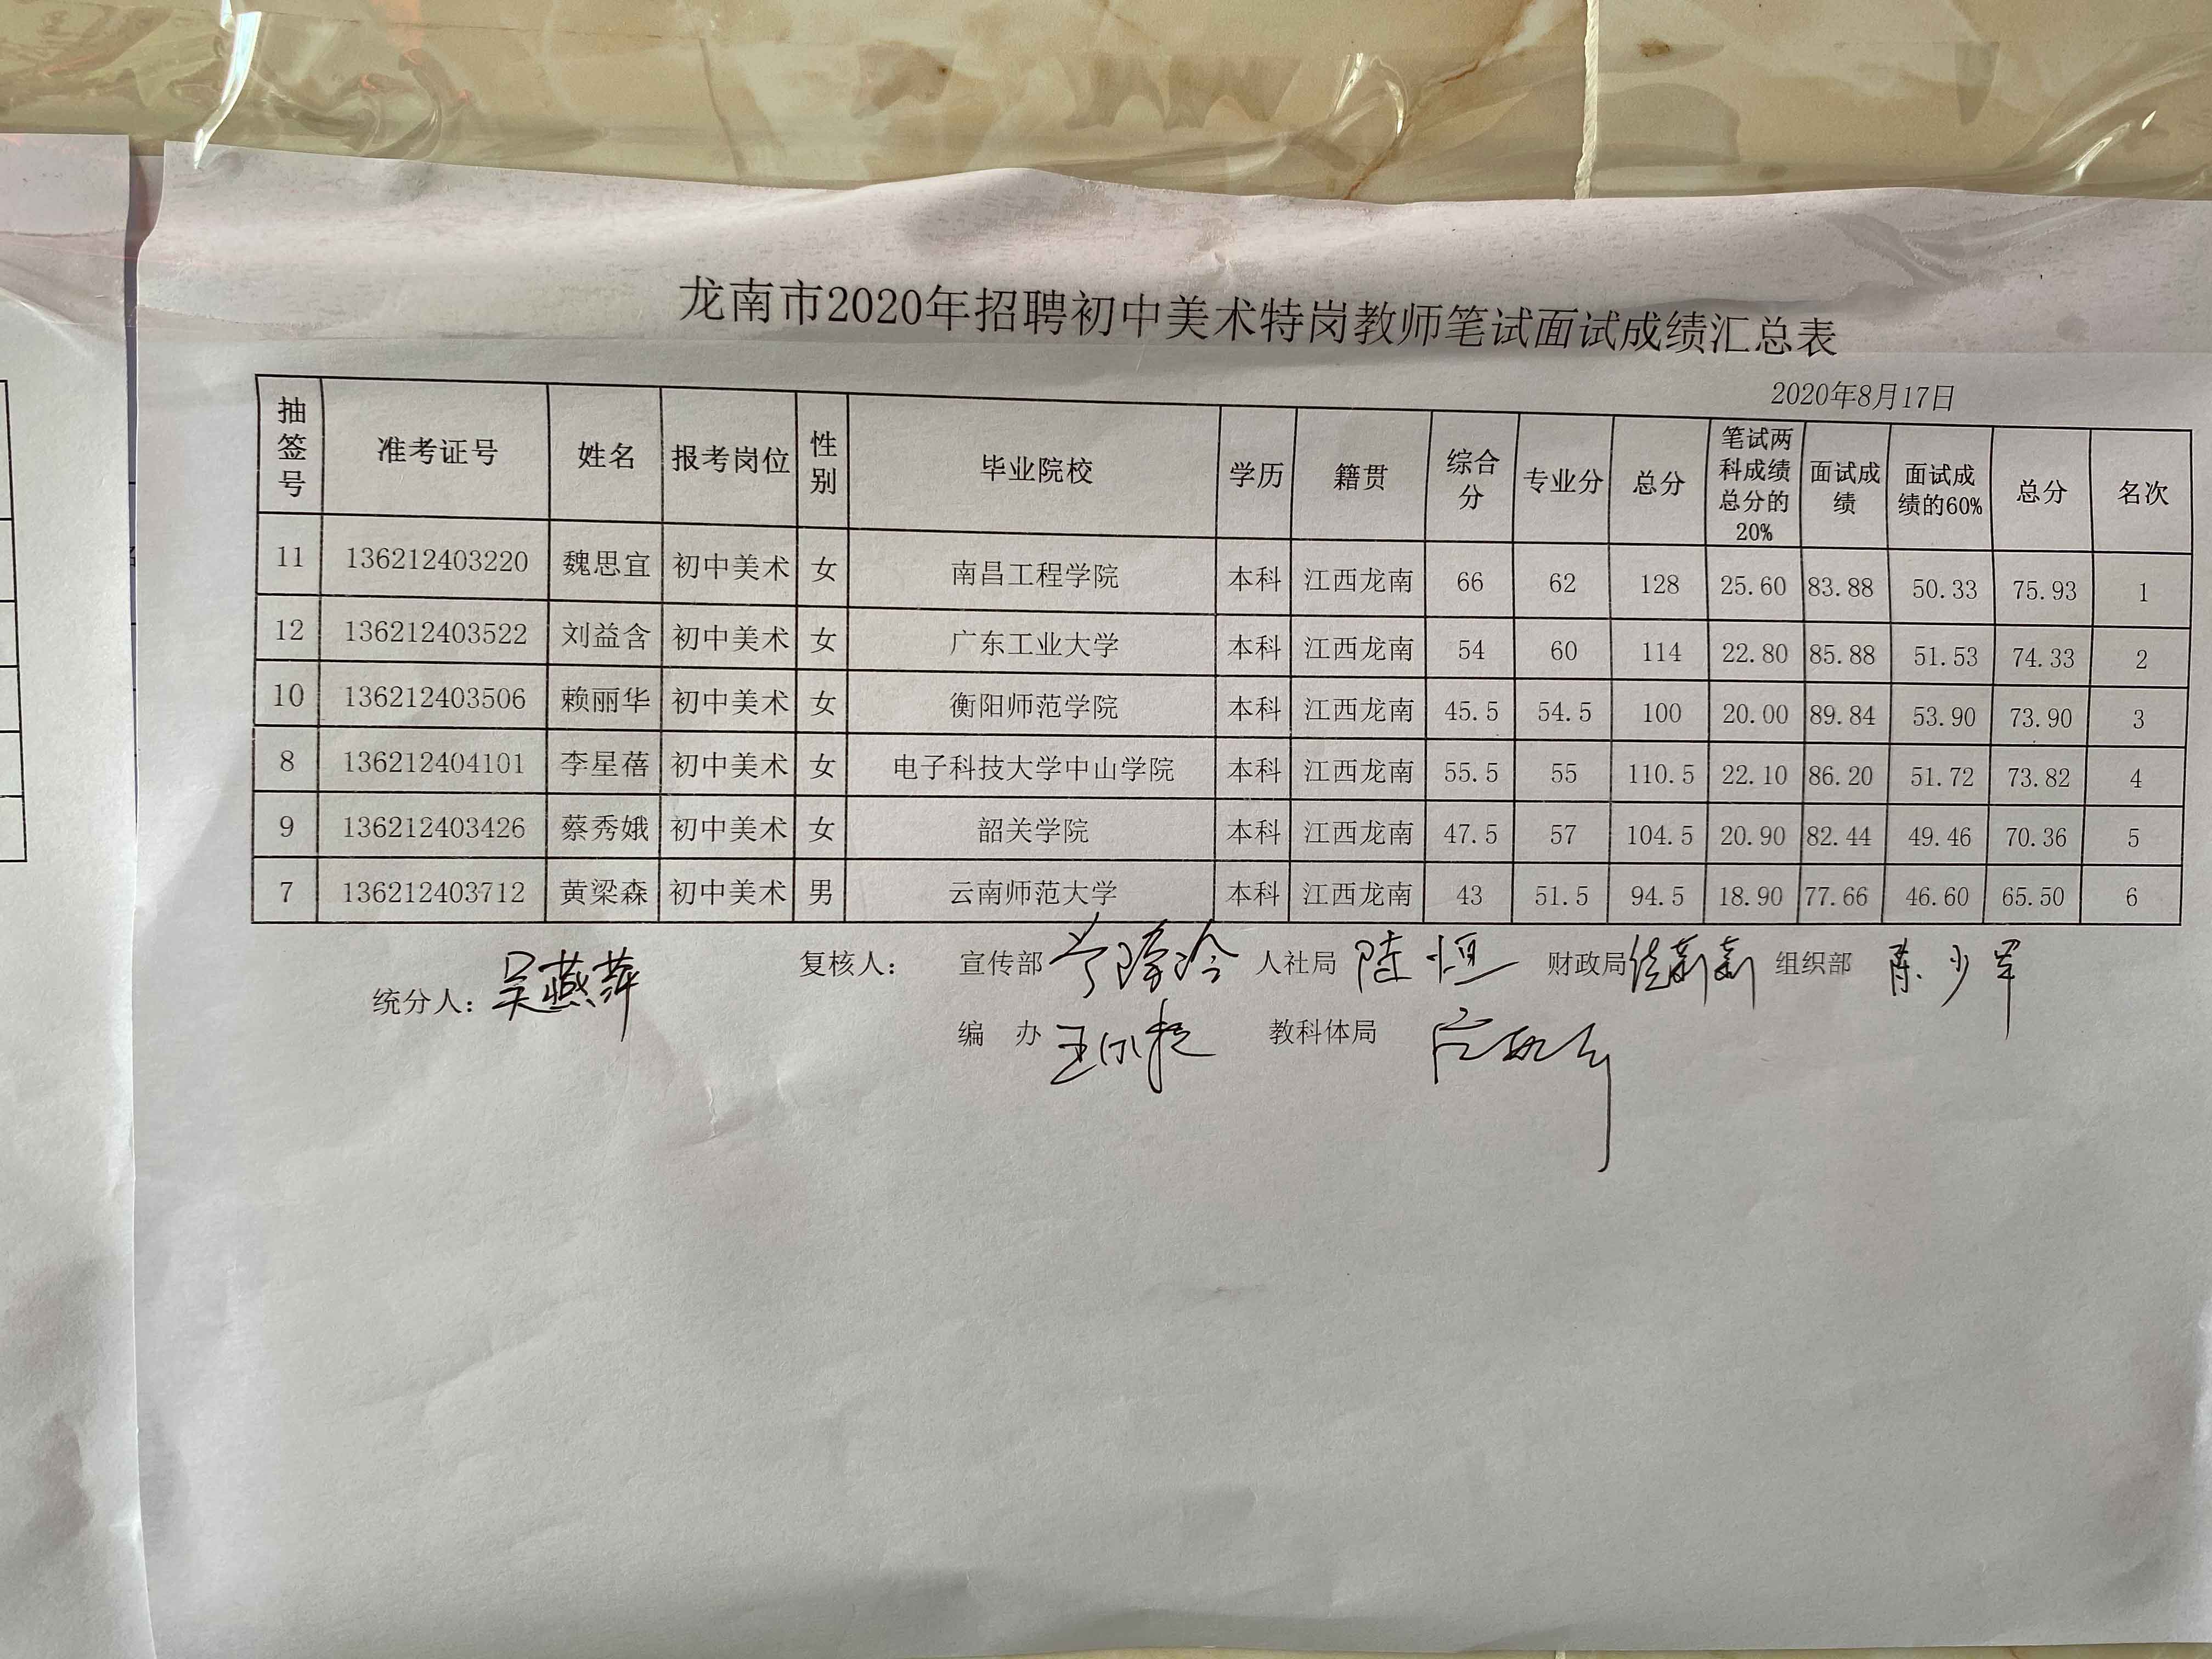 龙南市2020年招聘初中美术特岗教师笔试面试成绩汇总表
2020年8月17日
抽签号 准考证号 姓名 报考岗位 性别 毕业院校 学历 籍贯 综合分 专业分 总分 笔试两科成绩总分的20% 面试成绩 面试成绩的60% 总分 名次
11 136212403220 魏思宜 初中美术 女 南昌工程学院 本科 江西龙南 66 62 128 25.60 83.88 50.33 75.93 1
12 136212403522 刘益含 初中美术 女 广东工业大学 本科 江西龙南 54 60 114 22.80 85.88 51.53 74.33 2
10 136212403506 赖丽华 初中美术 女 衡阳师范学院 本科 江西龙南 45.5 54.5 100 20.00 89.84 53.90 73.90 3
8 136212404101 李星蓓 初中美术 女 电子科技大学中山学院 本科 江西龙南 55.5 55 110.5 22.10 86.20 51.72 73.82 4
9 136212403426 蔡秀娥 初中美术 女 韶关学院 本科 江西龙南 47.5 57 104.5 20.90 82.44 49.46 70.36 5
7 136212403712 黄梁森 初中美术 男 云南师范大学 本科 江西龙南 43 51.5 94.5 18.90 77.66 46.60 65.50 6
统分人：吴燕萍 复核人： 宣传部 人社局 陆恒 财政局 组织部 陈少军
编 办 教科体局